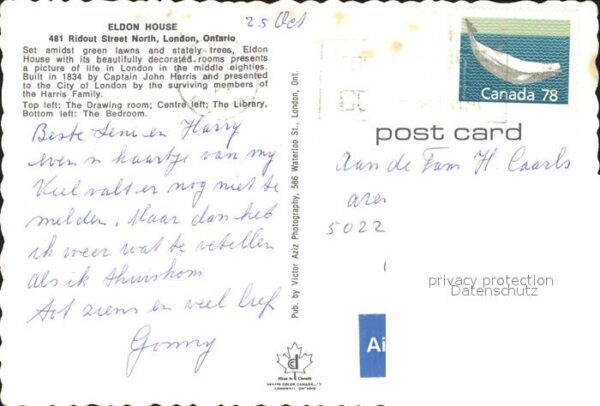 25 Oct
ELDON HOUSE
481 Ridout Street North, London, Ontario
Set amidst green lawns and stately trees, Eldon
House with its beautifully decorated rooms presents
a picture of life in London in the middle eighties.
Built in 1834 by Captain John Harris and presented
to the City of London by the surviving members of
the Harris Family.
Top left: The Drawing room; Centre left; The Library,
Bottom left: The Bedroom.
Beste Leni en Harry
even 'n kaartje van my
Veel valt er nog niet te
melden. Maar dan heb
ik weer wat te vetellen
als ik thuiskom
Tot ziens en veel lief
Pub. by Victor Aziz Photography, 566 Waterloo St., London, Ont.
Made in Canada
Canada 78
post card
Aan de Fam H. Caarls
5022
privacy protection
Datenschutz
Ai